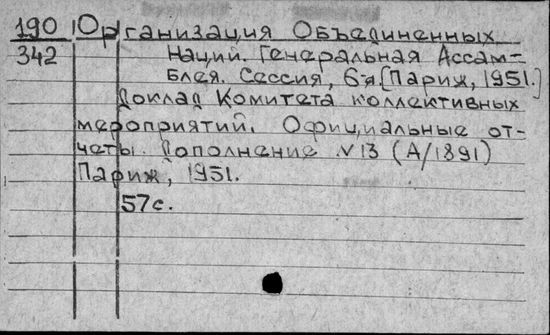 190 Организация Объединенных
342 Наций. Генеральная Ассам=
блея. Сессия, 6-я [Париж, 1951.]
Доклад Комитета коллективных
мероприятий. Официальные от-
четы. Дополнение №13 (А/1891)
Париж, 1951.
57с.